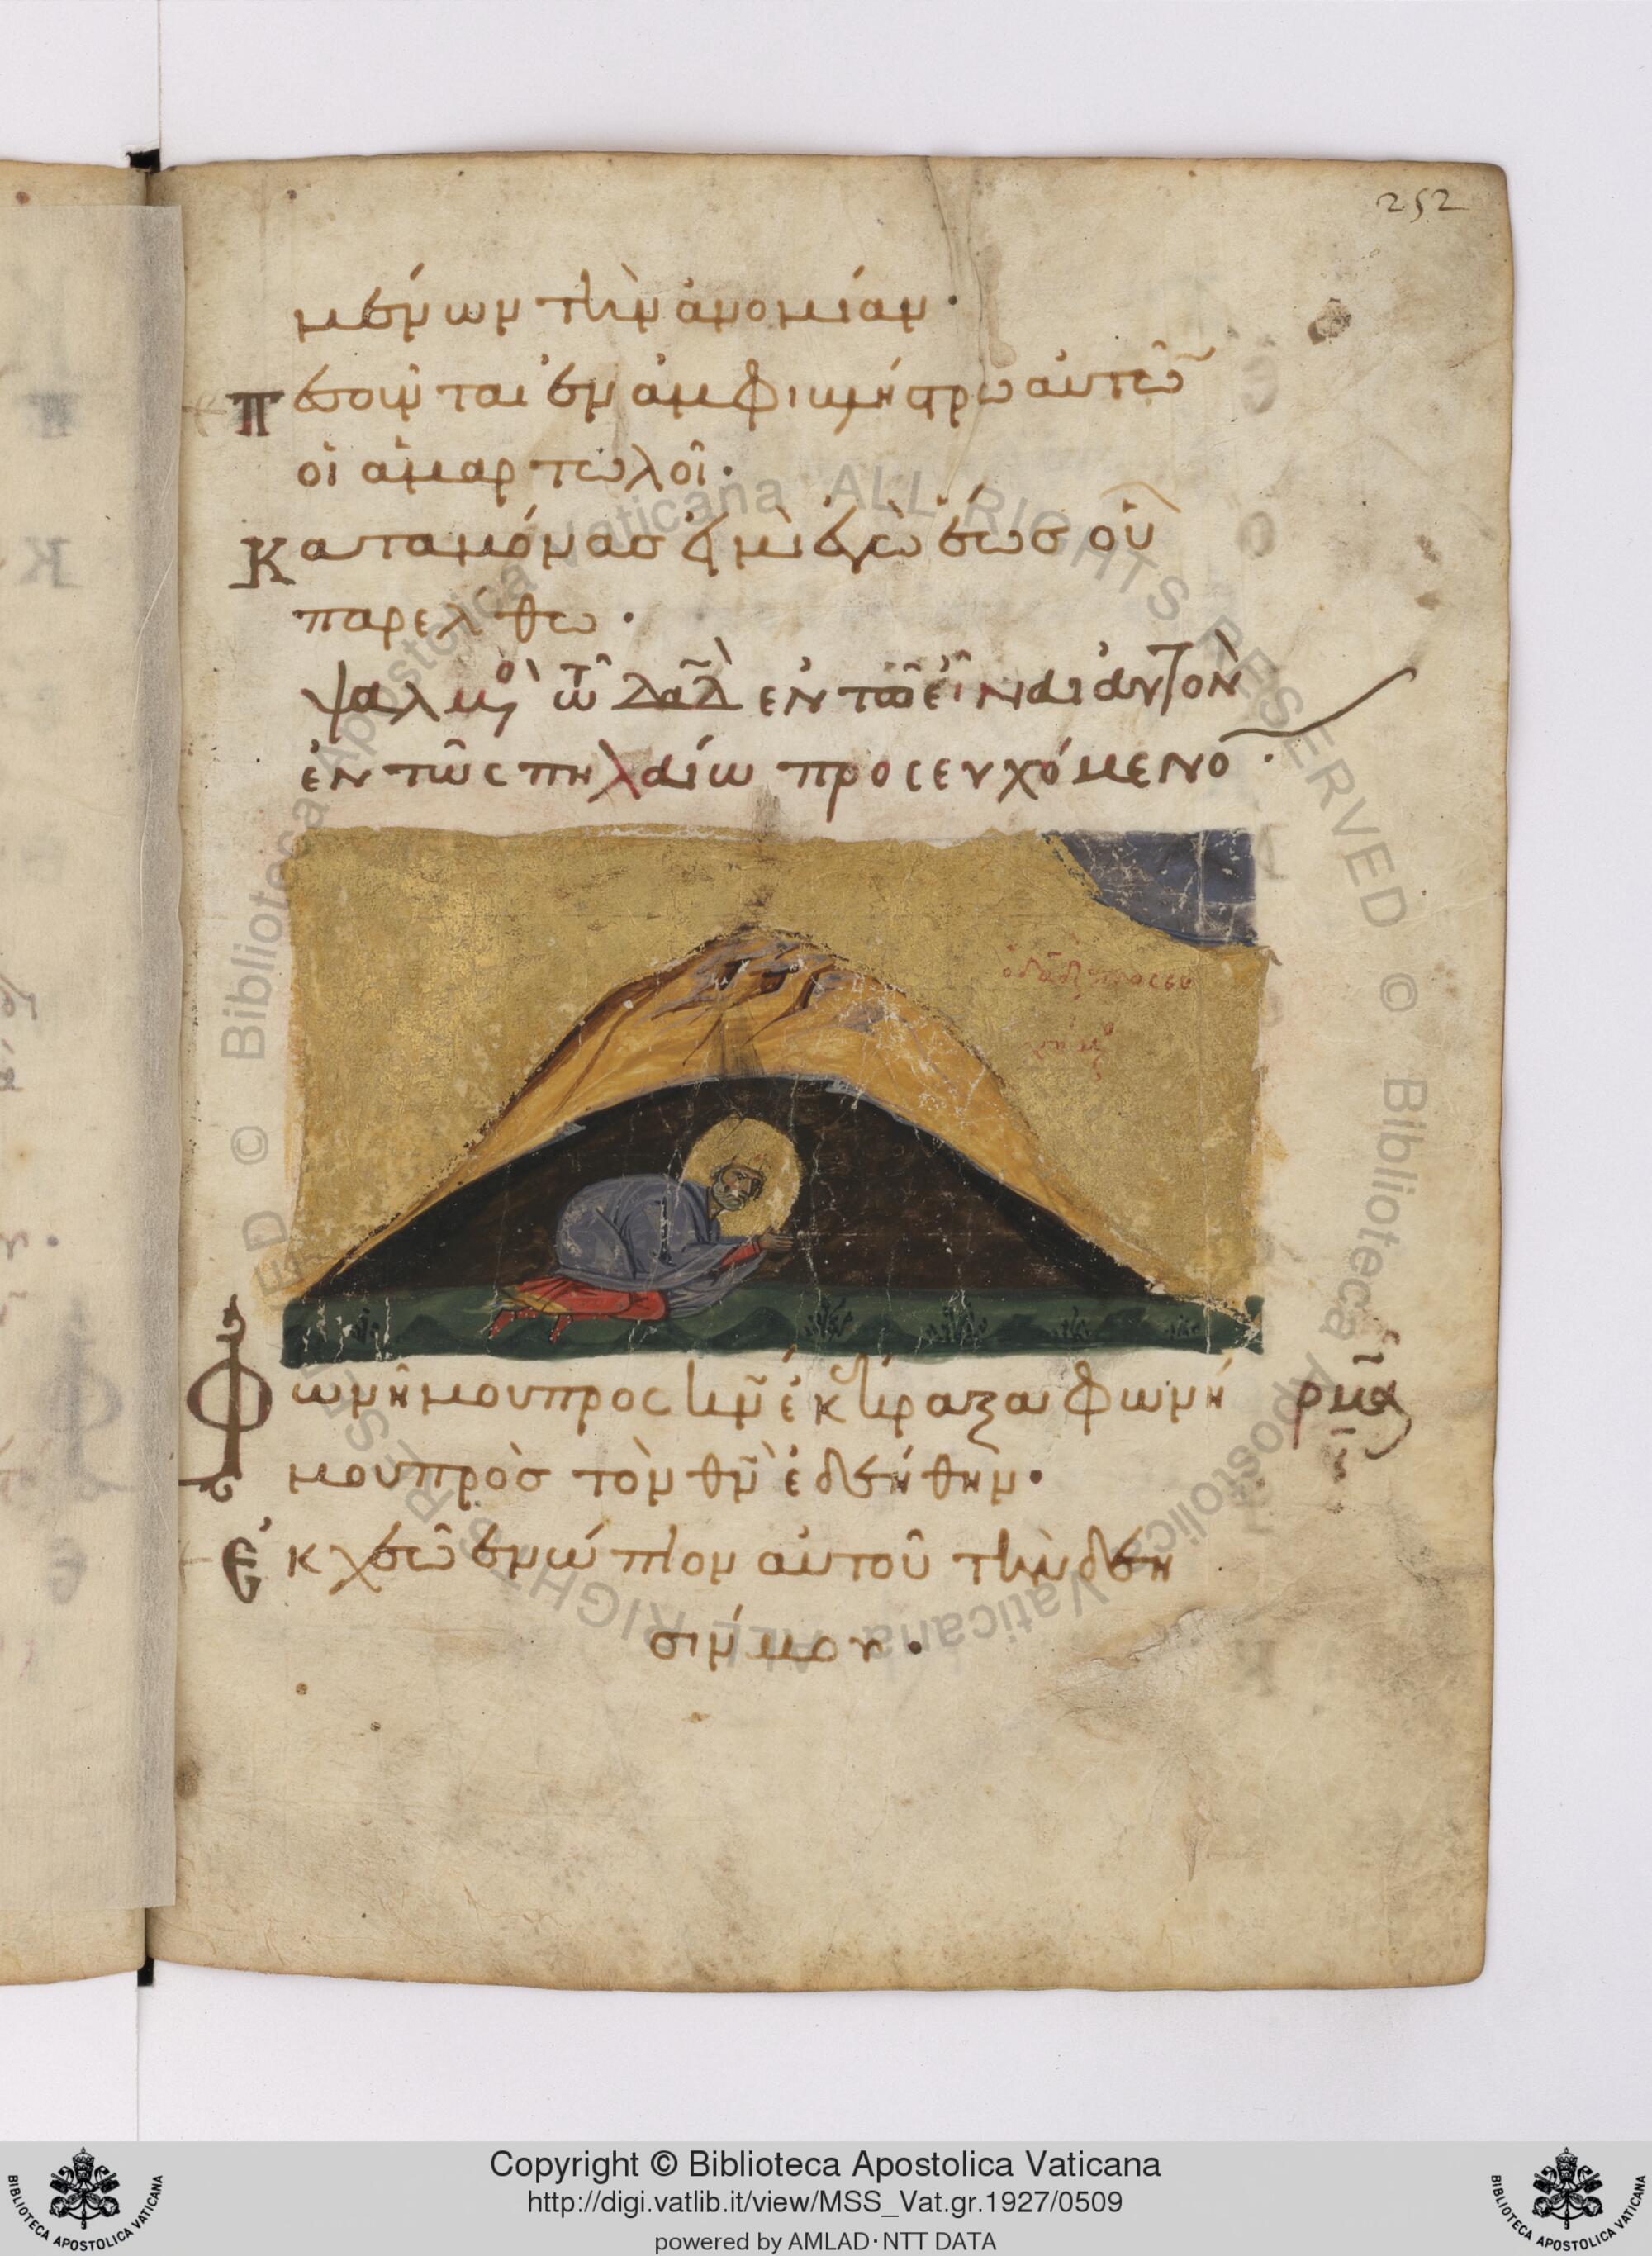 252
μένων τὴν ἀνομίαν·
Πεσοῦνται ἐν ἀμφιβλήστρω αὐτοῦ
οἱ ἁμαρτωλοί·
Καταμόνας εἰμὶ ἐγὼ ἕως οὗ
παρέλθω·
ψαλμὸς τῶ δαδ ἐν τῶ εἶναι αὐτὸν
ἐν τῶ σπηλαίω προσευχόμενο·
ὁ δαδ προσευ
χόμενος
Φωνῆ μου προς κν ἐκέκραξα φωνῆ ρμα
μου πρὸς τὸν θν ἐδεήθην·
Ἐκχεῶ ἐνώπιον αὐτοῦ τὴν δέη
σίν μου·
© Biblioteca Apostolica Vaticana ALL RIGHTS RESERVED © Biblioteca Apostolica Vaticana ALL RIGHTS RESERVED
Copyright © Biblioteca Apostolica Vaticana
http://digi.vatlib.it/view/MSS_Vat.gr.1927/0509
powered by AMLAD·NTT DATA
BIBLIOTECA APOSTOLICA VATICANA
BIBLIOTECA APOSTOLICA VATICANA